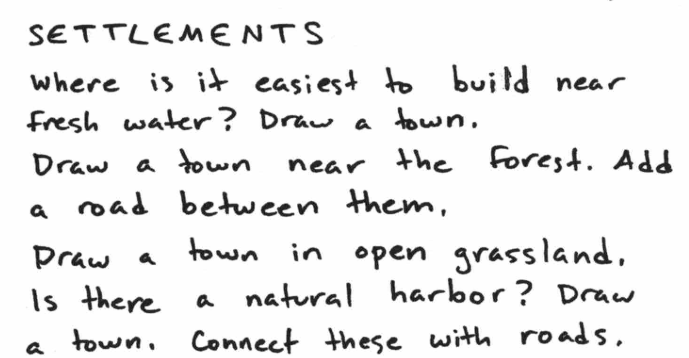 SETTLEMENTS
Where is it easiest to build near
fresh water? Draw a town.
Draw a town near the forest. Add
a road between them.
Draw a town in open grassland.
Is there a natural harbor? Draw
a town. Connect these with roads.